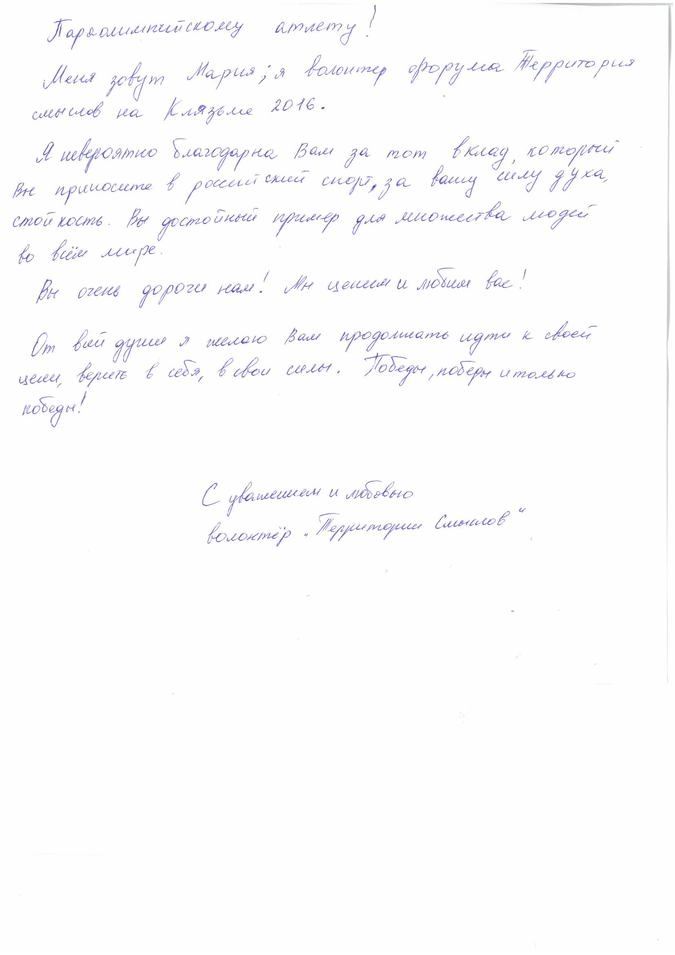 Параолимпийскому атлету!
Меня зовут Мария; я волонтер форума Территория
смыслов на Клязьме 2016.
Я невероятно благодарна Вам за тот вклад, который
Вы приносите в российский спорт, за вашу силу духа,
стойкость. Вы достойный пример для множества людей
во всём мире.
Вы очень дороги нам! Мы ценим и любим вас!
От всей души я желаю Вам продолжать идти к своей
цели, верить в себя, в свои силы. Победы, победы и только
победы!
С уважением и любовью
волонтёр „Территории Смыслов“